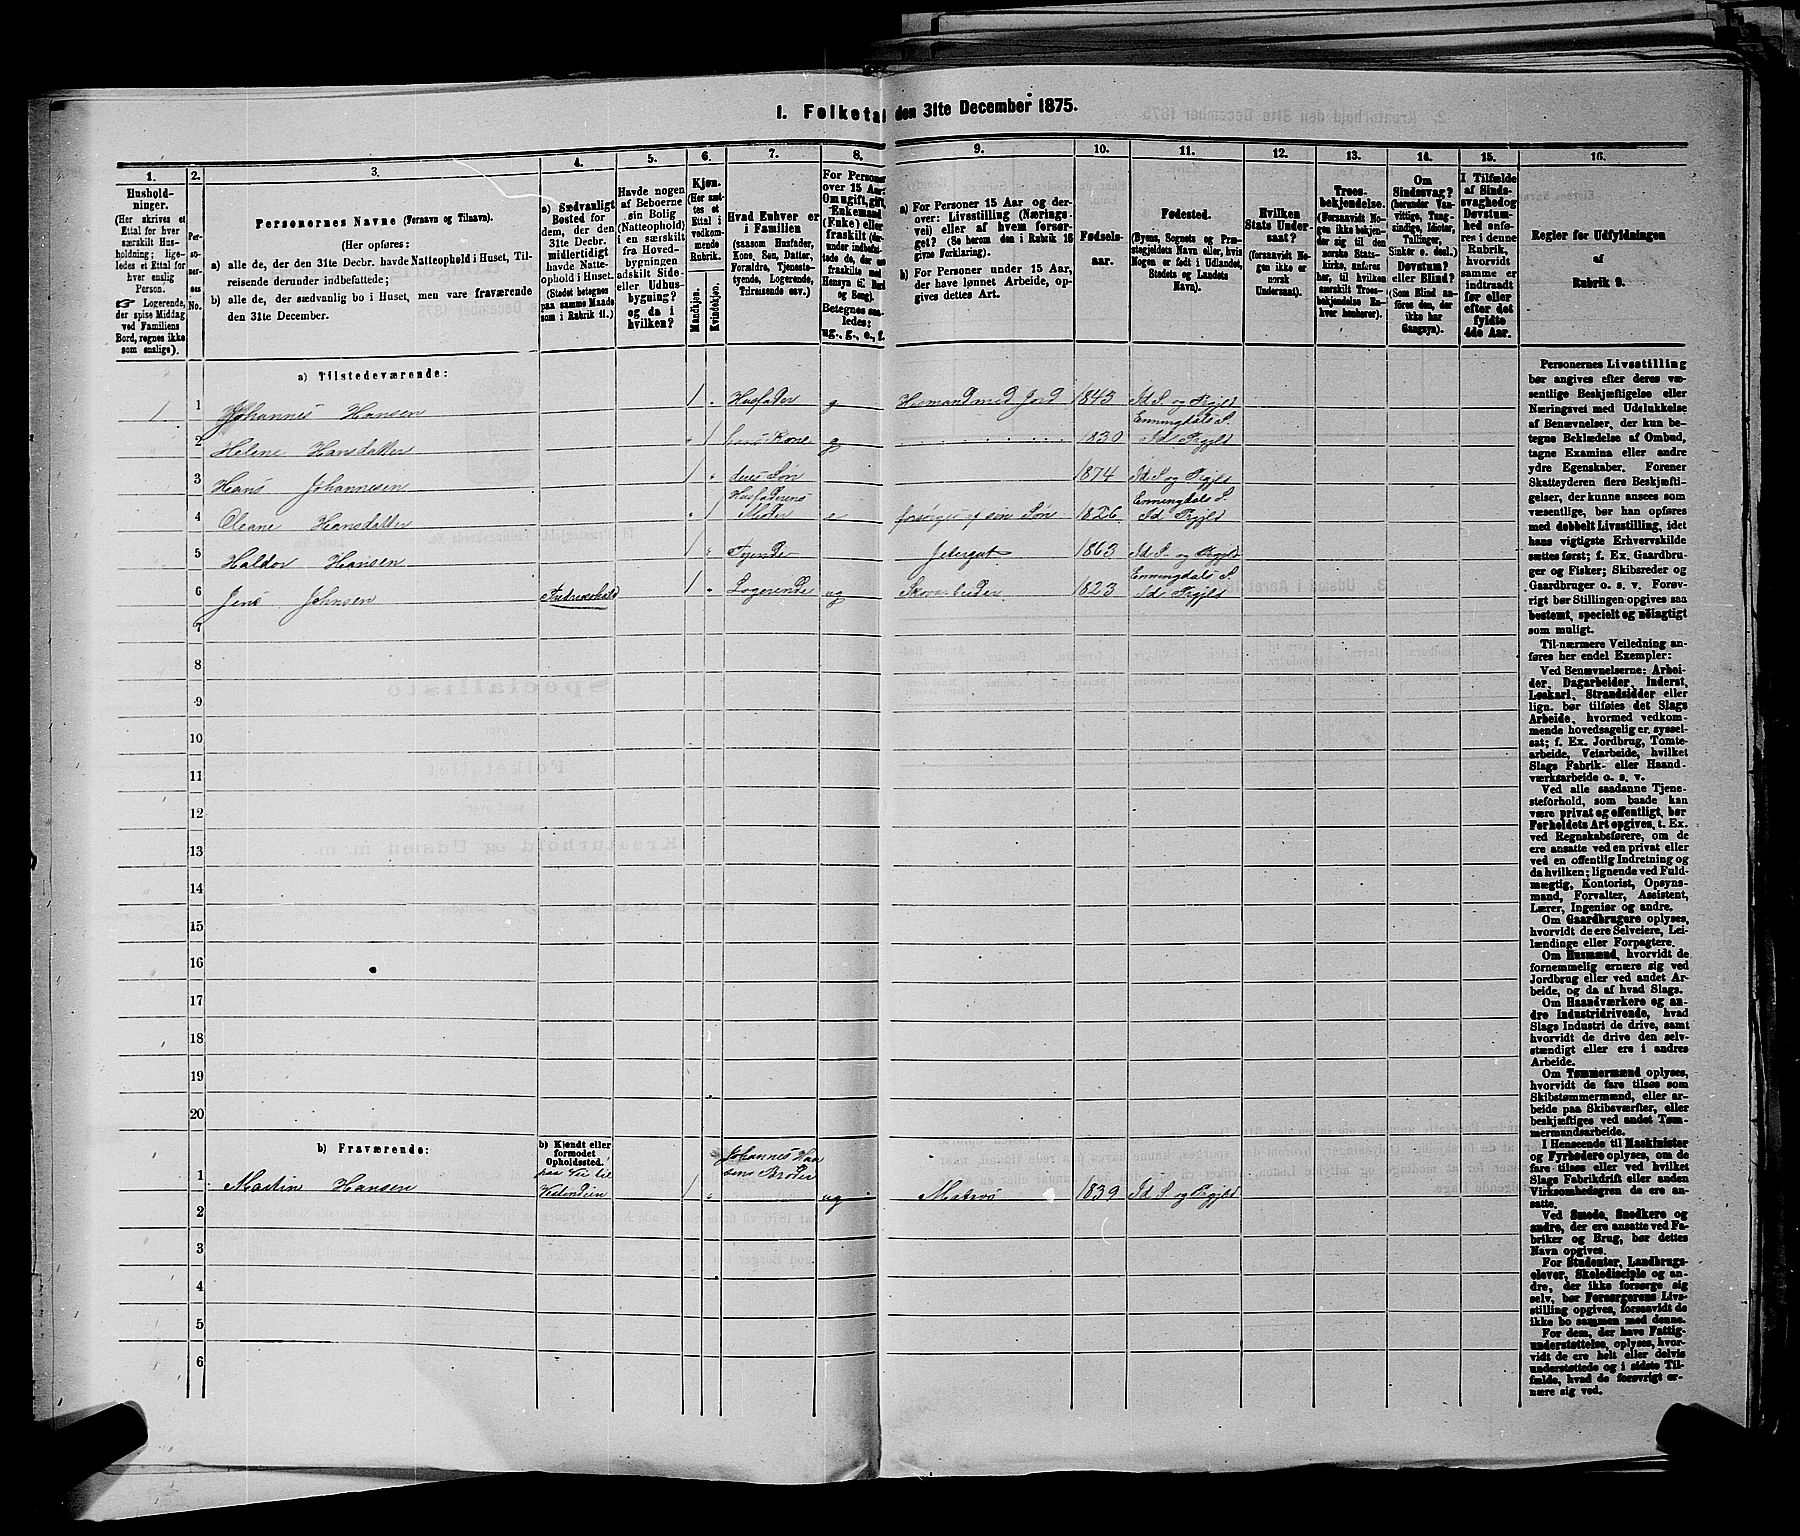 1. Folketal den 31te December 1875.
1.
Hushold-
ninger.
(Her skrives et
Ettal for hver
særskilt Hus-
holdning; lige-
ledes et Ettal for
hver enslig
Person.
☞ Logerende,
der spise Middag
ved Familiens
Bord, regnes ikke
som enslige).
2.
Per-
so-
ner-
nes
No.
3.
Personernes Navne (Fornavn og Tilnavn).
(Her opføres:
a) alle de, der den 31te Decbr. havde Natteophold i Huset, Til-
reisende derunder indbefattede;
b) alle de, der sædvanlig bo i Huset, men vare fraværende
den 31te December.
4.
a) Sædvanligt
Bosted for
dem, der den
31te Decbr.
midlertidigt
havde Natte-
ophold i Huset.
(Stedet betegnes
paa samme Maade
som i Rubrik 11.)
5.
Havde nogen
af Beboerne
sin Bolig
(Natteophold)
i en særskilt
fra Hoved-
bygningen
adskilt Side-
eller Udhus-
bygning?
og da i
hvilken?
6.
Kjøn.
(Her sæt-
tes et
Ettal i
vedkom-
mende
Rubrik.
Mandkjøn.
Kvindekjøn.
7.
Hvad Enhver er
i Familien
(saasom Husfader,
Kone, Søn, Datter,
Forældre, Tjeneste-
tyende, Logerende,
Tilreisende osv.)
8.
For Personer
over 15 Aar:
Om ugift, gift,
Enkemand
(Enke) eller
fraskilt (der-
under indbefat-
tede de, der ere
fraskilte med
Hensyn til Bord
og Seng).
Betegnes saa-
ledes:
ug., g., e., f.
9.
a) For Personer 15 Aar og der-
over: Livsstilling (Nærings-
vei) eller af hvem forsør-
get? (Se herom den i Rubrik 16
givne Forklaring).
b) For Personer under 15 Aar,
der have lønnet Arbeide, op-
gives dettes Art.
10.
Fødsels-
aar.
11.
Fødested.
(Byens, Sognets og Præ-
stegjeldets Navn eller, hvis
Nogen er født i Udlandet,
Stedets og Landets
Navn).
12.
Hvilken
Stats Under-
saat?
(forsaavidt No-
gen ikke er
norsk
Undersaat).
13.
Troes-
bekjendelse.
(Forsaavidt No-
gen ikke bekjen-
der sig til den
norske Stats-
kirke, anføres
her, til hvilken
særskilt Troes-
bekjendelse En-
hver henhører).
14.
Om
Sindssvag?
(herunder Van-
vittige, Tung-
sindige, Idioter,
Tullinger,
Sinker o. desl.)
Døvstum?
eller Blind?
(Som Blind an-
føres den, der
ikke har
Gangsyn).
15.
I Tilfælde
af Sinds-
svaghed og
Døvstum-
hed anfø-
res i denne
Rubrik,
hvorvidt
samme er
indtraadt
før eller
efter det
fyldte
4de Aar.
16.
Regler for Udfyldningen
af
Rubrik 9.
a) Tilstedeværende:
1 1 Johannes Hansen 1 Husfader g Husmand med Jord 1843 Id S. og Prgjld
2 Helene Hansdatter 1 hans Kone g 1830 Enningdals S. Id Prgjld
3 Hans Johannesen 1 deres Søn 1874 Id S. og Prgjld
4 Oleane Hansdatter 1 Husfaderens Moder e forsørges af sin Søn 1826 Enningdals S. Id Prgjld
5 Haldor Hansen 1 Tyende Jetergut 1863 Id S. og Prgjld
6 Jens Johnsen Fredrikshald 1 Logerende ug Skovarbeider 1823 Enningdals S. Id Prgjld
7
8
9
10
11
12
13
14
15
16
17
18
19
20
b) Fraværende:
b) Kjendt eller
formodet
Opholdssted.
1 Martin Hansen paa Vei til Vestindien 1 Johannes Hansens Broder ug Matros 1839 Id S. og Prgjld
2
3
4
5
6
Personernes Livsstilling
bør angives efter deres væ-
sentlige Beskjæftigelse eller
Næringsvei med Udelukkelse
af Benævnelser, der kun be-
tegne Beklædelse af Ombud,
tagne Examina eller andre
ydre Egenskaber. Forener
Skatteyderen flere Beskjæfti-
gelser, der kunne ansees som
væsentlige, bør han opføres
med dobbelt Livsstilling, idet
hans vigtigste Erhvervskilde
sættes først; f. Ex. Gaardbru-
ger og Fisker; Skibsreder og
Gaardbruger o. s. v. Forøv-
rigt bør Stillingen opgives saa
bestemt, specielt og nøiagtigt
som muligt.
Til nærmere Veiledning an-
føres her endel Exempler:
Ved Benævnelserne: Arbei-
der, Dagarbeider, Inderst,
Løskarl, Strandsidder eller
lign. bør tilføies det Slags
Arbeide, hvormed vedkom-
mende hovedsagelig er syssel-
sat; f. Ex. Jordbrug, Tomte-
arbeide, Veiarbeide, hvilket
Slags Fabrik- eller Haand-
værksarbeide o. s. v.
Ved alle saadanne Tjene-
steforhold, som baade kan
være privat og offentligt, bør
Forholdets Art opgives, t. Ex.
ved Regnskabsførere, om de
ere ansatte ved en privat eller
ved en offentlig Indretning og
da hvilken; lignende ved Fuld-
mægtig, Kontorist, Opsyns-
mand, Forvalter, Assistent,
Lærer, Ingeniør og andre.
Om Gaardbrugere oplyses,
hvorvidt de ere Selveiere, Lei-
lændinge eller Forpagtere.
Om Husmænd, hvorvidt de
fornemmelig ernære sig ved
Jordbrug eller ved andet Ar-
beide, og da af hvad Slags.
Om Haandværkere og an-
dre Industridrivende, hvad
Slags Industri de drive, samt
hvorvidt de drive den selv-
stændigt eller ere i andres
Arbeide.
Om Tømmermænd oplyses,
hvorvidt de fare tilsøs som
Skibstømmermænd, eller ar-
beide paa Skibsværfter, eller
beskjæftiges ved andet Tøm-
mermandsarbeide.
I Henseende til Maskinister
og Fyrbødere oplyses, om de
fare tilsøs eller ved hvilket
Slags Fabrikdrift eller anden
Virksomhedsgren de ere an-
satte.
Ved Smede, Snedkere og
andre, der ere ansatte ved Fa-
briker og Brug, bør dettes
Navn opgives.
For Studenter, Landbrugs-
elever, Skoledisciple og an-
dre, der ikke forsørge sig
selv, bør Forsørgerens Livs-
stilling opgives, forsaavidt de
ikke bo sammen med denne.
For dem, der have Fattig-
understøttelse, oplyses, hvor-
vidt de ere helt eller delvis
understøttede og i sidste Til-
fælde, hvad de forøvrigt er-
nære sig ved.